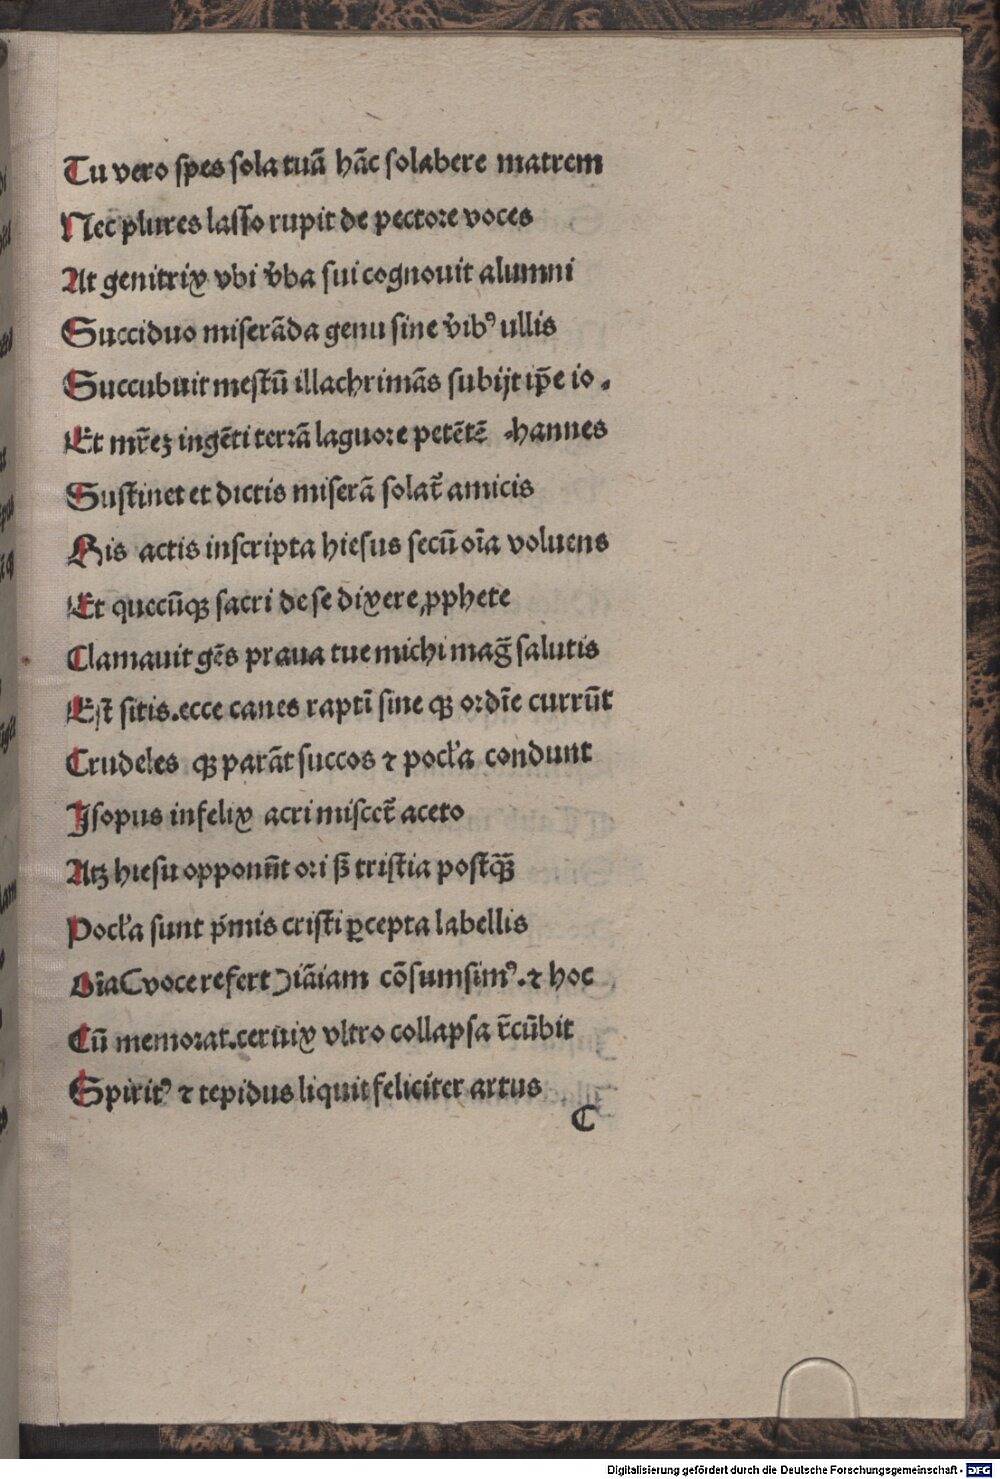 Tu vero ſpes ſola tuā hāc ſolabere matrem
Nec plures laſſo rupit de pectore voces
At genitrix vbi v̄ba ſui cognouit alumni
Succiduo miſerāda genu ſine v̄ibꝰ ullis
Succubuit meſtū illachrimās ſubijt ip̄e io⸗
Et mr̄eꝫ ingēti terrā laguore petētē ⸗hannes
Suſtinet et dictis miſerā ſolat̄ amicis
His actis inſcripta hieſus ſecū oīa voluens
Et quecūqꝫ ſacri de ſe dixere ꝓphete
Clamauit gēs praua tue michi maḡ ſalutis
Eſt̄ ſitis.ecce canes raptī ſine qꝫ ordīe currūt
Crudeles qꝫ parāt ſuccos ⁊ pocl̓a condunt
Iſopus infelix acri miſcet̄ aceto
Atꝫ hieſu opponūt ori ſꝫ triſtia poſtqꝫ̄
Pocl̓a ſunt pͥmis criſti ꝑcepta labellis
Oīa(voce refert)iāiam cōſumſimꝰ.⁊ hoc
Cū memorat.ceruix vltro collapſa r̄cūbit
Spiritꝰ ⁊ tepidus liquit feliciter artus
C
Digitalisierung gefördert durch die Deutsche Forschungsgemeinschaft - DFG